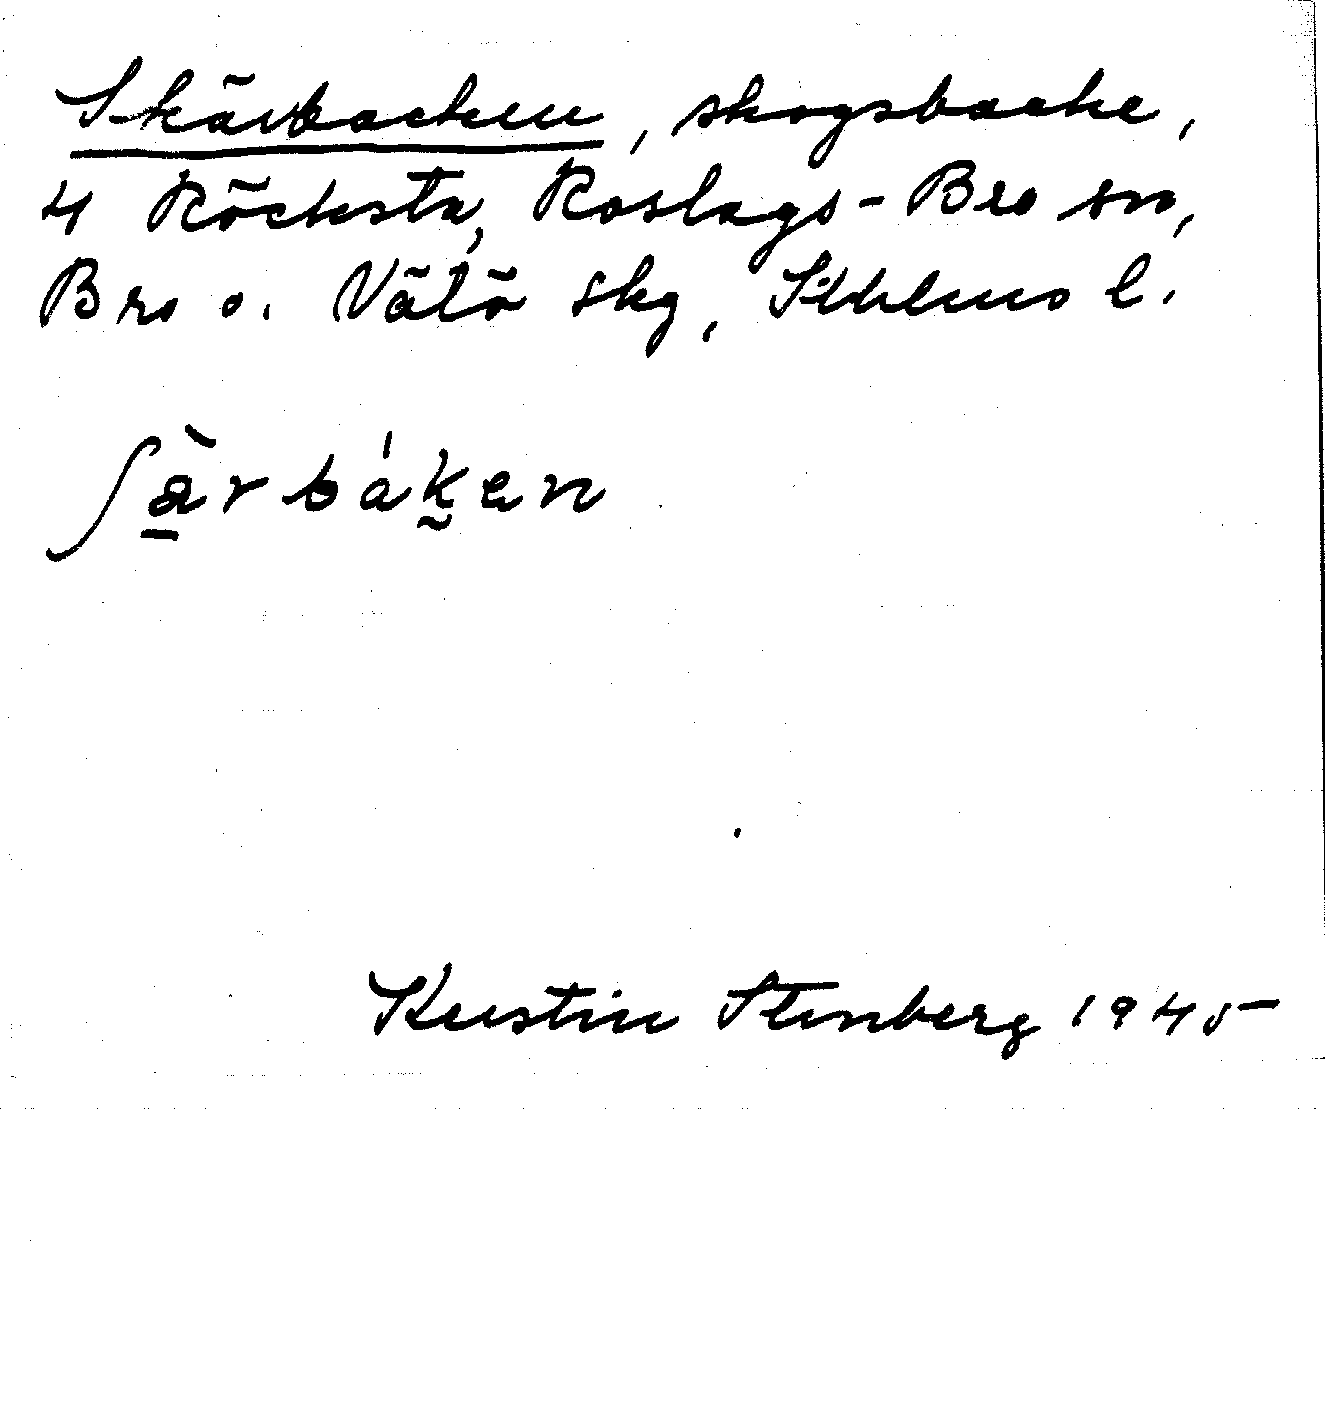 Skärbacken, skogsbacke,
4 Röcksta, Roslags-Bro sn,
Bro o. Vätö skg, Sthlms l.
ʃæ̀rbáken
Kerstin Stenberg 1945